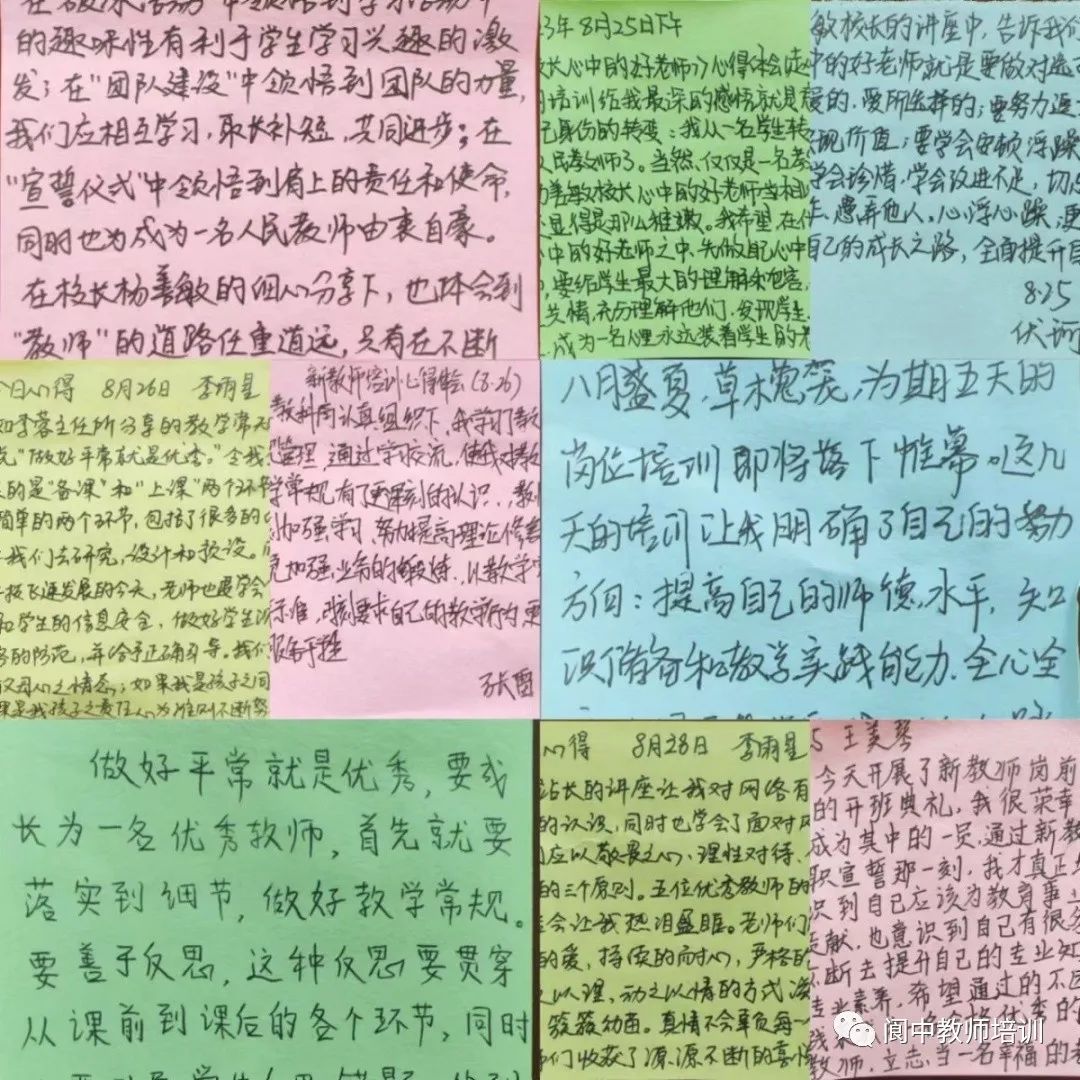 的趣味性有利于学生学习兴趣的激
发；在"团队建设"中领悟到团队的力量，
我们应相互学习，取长补短，共同进步；在
"宣誓仪式"中领悟到肩上的责任和使命，
同时也为成为一名人民教师由衷自豪。
在校长杨善敏的细心分享下，也体会到
"教师"的道路任重道远，只有在不断
3年8月25日下午
长心中的好老师》心得体会
培训给我最深的感悟就是
己身份的转变：我从一名学生转
人民教师了。当然，仅仅是一名老
善敏校长心中的好老师当相比
显得是那么稚嫩。我希望在
中的好老师之中，先做自己心中
，要给学生最大的理解和包容，
共情，充分理解他们，发现学生
成为一名心里永远装着学生的老
敏校长的讲座中，告诉我们
中的好老师就是要做对选
爱的，爱所选择的；要努力追
现价值；要学会安顿浮躁
学会珍惜，学会改进不足，切忌
他人，心浮心躁，更
自己的成长之路，全面提升自
8.25
伏
今日心得 8月26日 李雨星
如李蓉主任所分享的教学常规
"做好平常就是优秀。"令我
的是"备课"和"上课"两个环节
简单的两个环节，包括了很多的
我们去研究，设计和预设。
技飞速发展的今天，老师也要学会
和学生的信息安全，做好学生
的防范，并给予正确引导。我们
父母心之情态；如果我是孩子之间
果是我孩子之责任人为准则不断努
新教师培训心得体会(8.26)
教科局认真组织下，我学习了教
管理，通过学习交流，使我对教
学常规有了更深刻的认识，教
加强学习，努力提高理论修养
更加强业务的锻炼，以教学
标准，时刻要求自己的教学行为更
张雷
八月盛夏，草木葱茏，为期五天的
岗位培训即将落下帷幕。这几
天的培训让我明确了自己的努力
方向：提高自己的师德水平，知
识储备和教学实践能力.全心全
做好平常就是优秀，要成
长为一名优秀教师，首先就要
落实到细节，做好教学常规。
要善于反思，这种反思要贯穿
从课前到课后的各个环节，同时
心得 8月28日 李雨星
站长的讲座让我对网络有
的认识，同时也学会了面对
应以敬畏之心、理性对待、
的三个原则。五位优秀教师的
会让我热泪盈眶。老师们
的爱，持续的耐心，严格的
以理，动之以情的方式
簌簌动面。真情不会辜负每一
们收获了源源不断的喜悦
5 王美琴
今天开展了新教师岗前
的开班典礼，我很荣幸
成为其中的一员，通过新教
职宣誓那一刻，我才真正
识到自己应该为教育事业
贡献，也意识到自己有很多
不断去提升自己的专业知
专业素养，希望通过的不
优秀的
教师，立志当一名幸福的
阆中教师培训